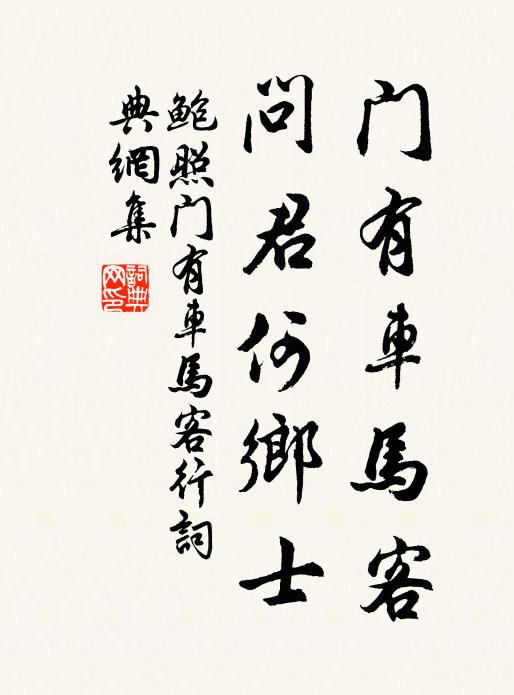 门有車馬客
問君何鄉士
鮑照门有車馬客行詞
典網集
詞典
网印